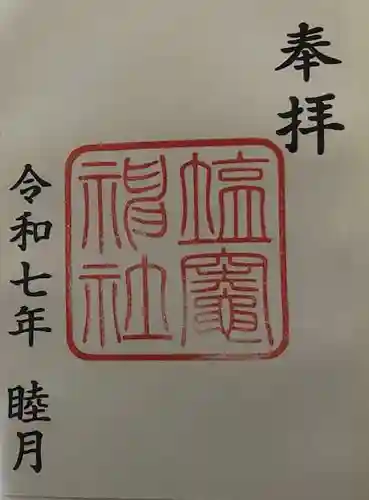 奉拝
塩竈
神社
令和七年 睦月